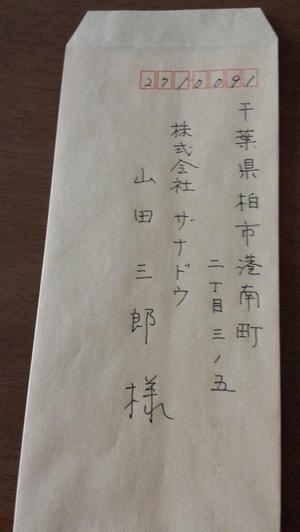 2710091
千葉県柏市港南町
二丁目三ノ五
株式会社 ザナドウ
山田三郎様